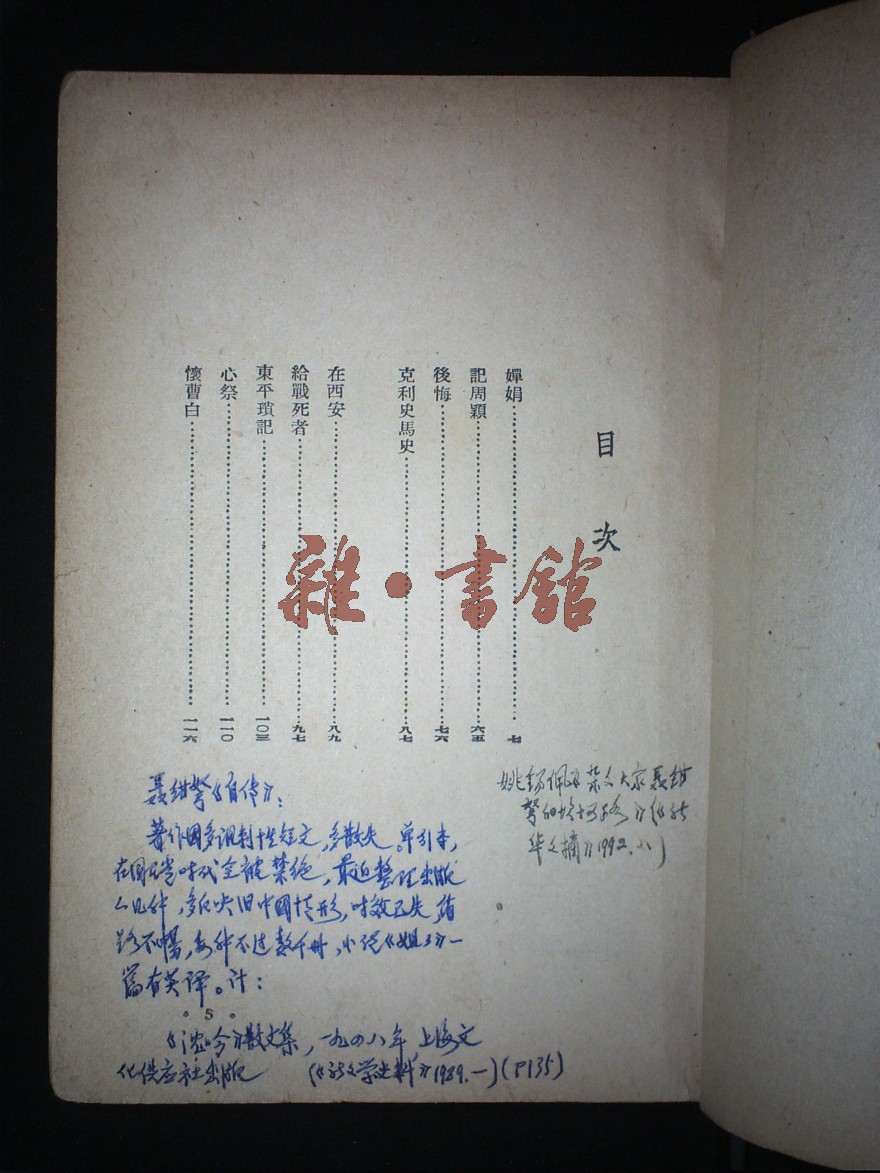 目次
嬋娟……七
記周穎……六五
後悔……七六
克利史馬史……八七
在西安……八九
給戰死者……九七
東平瑣記……一〇三
心祭……一一〇
懷曹白……一一六
雜·書館
姚锡佩《杂文大家聂绀
弩的坎坷路》《新
华文摘》1992.八)
聂绀弩《自传》:
著作國多讽刺性短文,多散失。单行本,
在国民党时代全被禁绝,最近整理出版
几种,多反映旧中國情形,时效已失,销
路不暢,每种不过数千册,小说《姐姐》一
篇有英译。计:
5
《沈吟》散文集,一九四八年,上海文
化供应社出版 (《新文学史料》1989.一)(P135)